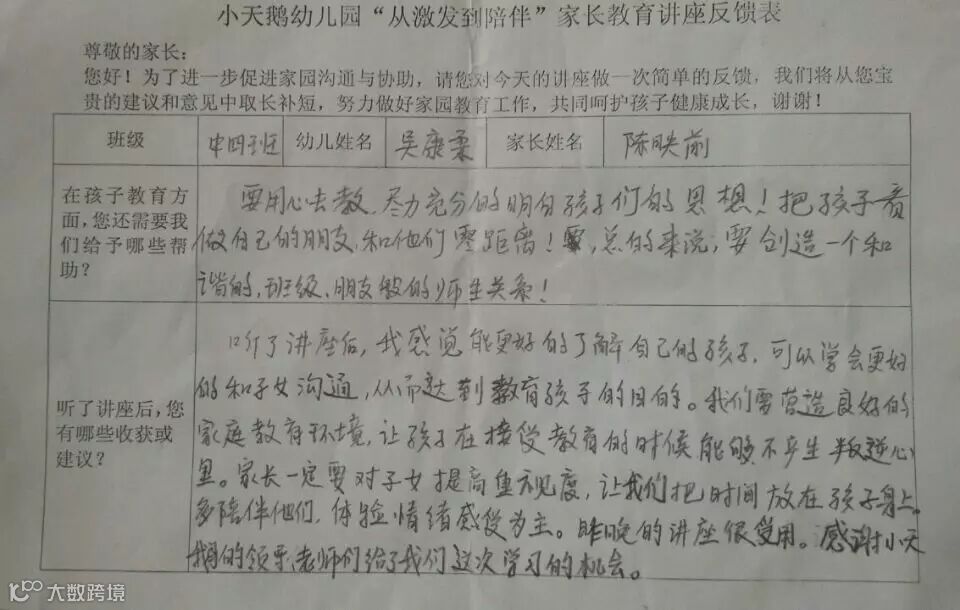 小天鹅幼儿园“从激发到陪伴”家长教育讲座反馈表
尊敬的家长：
您好！为了进一步促进家园沟通与协助，请您对今天的讲座做一次简单的反馈，我们将从您宝
贵的建议和意见中取长补短，努力做好家园教育工作，共同呵护孩子健康成长，谢谢！
班级 中四班 幼儿姓名 吴康柔 家长姓名 陈映前
在孩子教育方
面，您还需要我
们给予哪些帮
助？
要用心去教，尽力充分的明白孩子们的思想！把孩子看
做自己的朋友，和他们零距离！总的来说，要创造一个和
谐的，班级、朋友般的师生关系！
听了讲座后，您
有哪些收获或
建议？
听了讲座后，我感觉能更好的了解自己的孩子，可以学会更好
的和子女沟通，从而达到教育孩子的目的。我们需营造良好的
家庭教育环境，让孩子在接受教育的时候能够不产生叛逆心
里。家长一定要对子女提高重视度，让我们把时间放在孩子身上。
多陪伴他们，体验情绪感受为主。昨晚的讲座很受用。感谢小天
鹅的领导、老师们给了我们这次学习的机会。
大数跨境